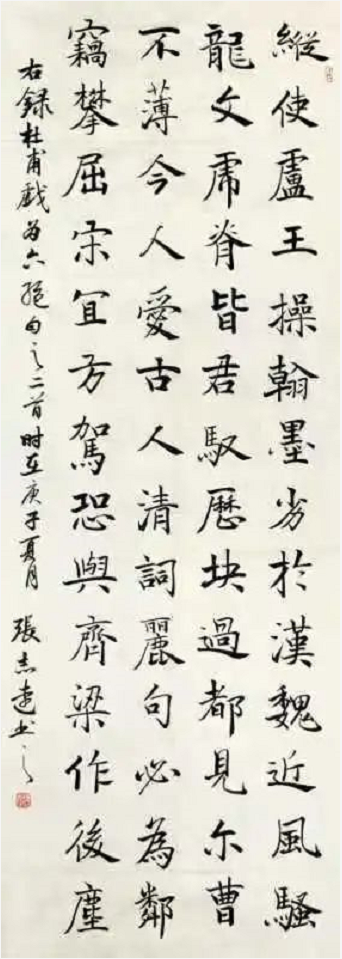 縱使盧王操翰墨劣於漢魏近風騷
龍文虎脊皆君馭歷块過都見尔曹
不薄今人愛古人清詞麗句必為鄰
竊攀屈宋宜方駕恐與齊梁作後塵
右録杜甫戲為六絕句之二首時在庚子夏月 張志連书之